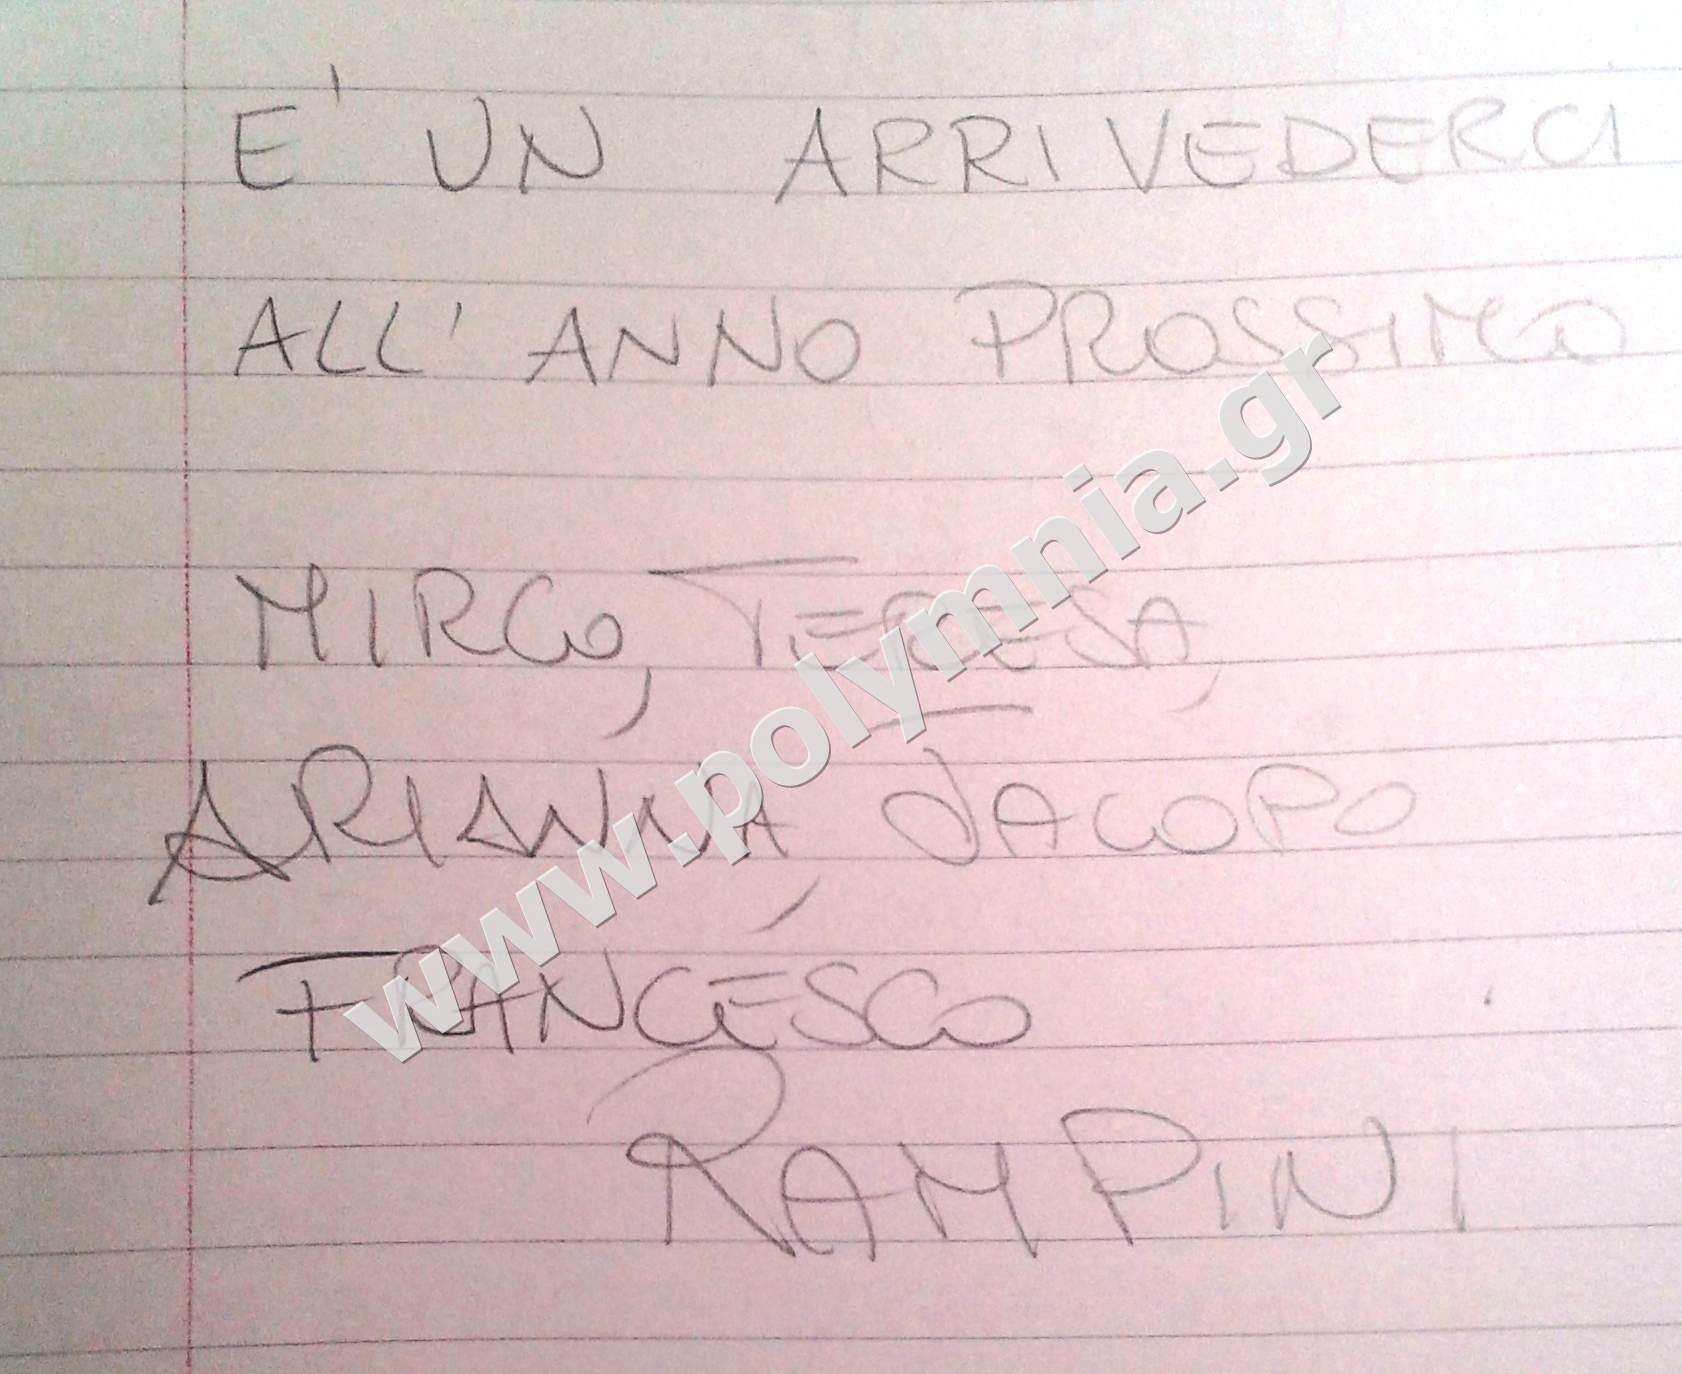 E' UN ARRIVEDERCI
ALL' ANNO PROSSIMO
MIRCO, TERESA,
ARIANNA, JACOPO
FRANCESCO
RAMPINI
www.polymnia.gr